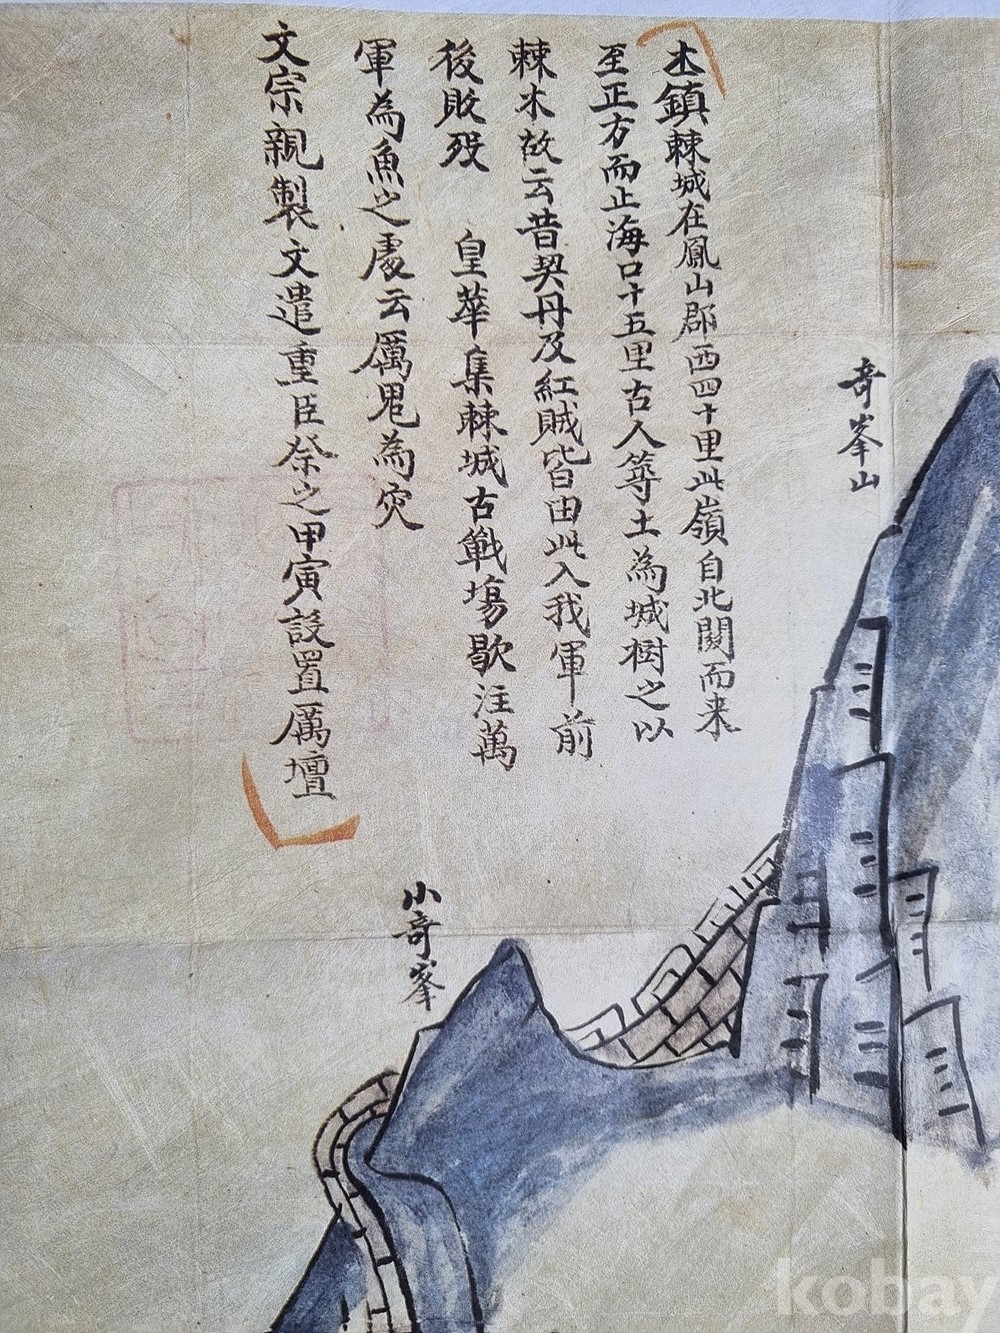 本鎮棘城在鳳山郡西四十里此嶺自北関而来
至正方而止海口十五里古人筭土為城樹之以
棘木故云昔契丹及紅賊皆由此入我軍前
後敗歿 皇華集棘城古戰場歇注萬
軍為魚之處云厲鬼為灾
文宗親製文遣重臣祭之甲寅設置厲壇
奇峯山
小奇峯
kobay